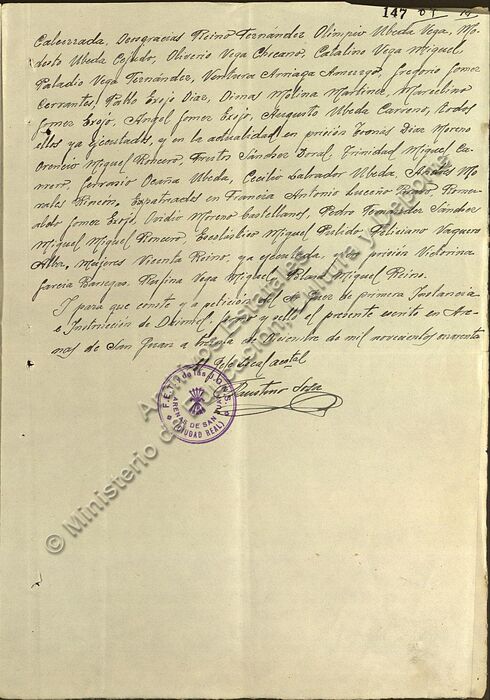 147
Calcerrada, Deogracias Ticino Fernández Olimpio Ubeda Vega, Mo-
desto Ubeda Cejudo, Oliverio Vega Chicano, Catalino Vega Miguel
Paladio Vega Fernández, Ventura Arriaga Amezrgo, Gregorio Gomez
Cervantes, Pablo Erejo Diaz, Dimas Molina Martinez, Marcelino
Gomez Erejo, Angel Gomez Erejo, Augusto Ubeda Carreño, todos
ellos ya ejecutados, y en la actualidad en prisión Diaz Moreno
Orencio Miguel Romero, Fructos Sánchez Doral, Trinidad Miguel Ca-
mero, Ocaña Ubeda, Cecilio Labrador Ubeda, Mo-
rales Rincón. Expatriados en Francia Antonio Romu-
aldo Gomez Erejo, Ovidio Moreno Castellanos, Pedro Sánchez
Miguel Miguel Romero, Escolástico Miguel Pulido Feliciano Vaquero
Alba. Mujeres Vicenta Reino, ya ejecutada, y en prisión Victorina
Garcia Banegas, Rufina Vega Miguel, Miguel Reino.
Y para que conste y a petición del Sr Juez de primera Instancia
e Instrucción de Daimiel, firmo y sello el presente escrito en Are-
nas de San Juan a de Diciembre de mil novecientos cuarenta
El Jefe Local actal
Faustino Sosa
F.E.T. y de las J.O.N.S.
ARENAS DE SAN JUAN
(CIUDAD REAL)
© Ministerio de Educación, Cultura y Deporte
Archivos Estatales